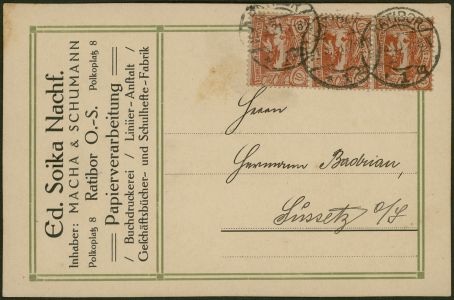 Ed. Soika Nachf.
Inhaber: MACHA & SCHUMANN
Polkoplatz 8 Ratibor O.-S. Polkoplatz 8
Papierverarbeitung
/ Buchdruckerei / Liniier-Anstalt /
Geschäftsbücher- und Schulhefte-Fabrik
RATIBOR
Herrn
Hermann Badrian,
Lussetz O/S.